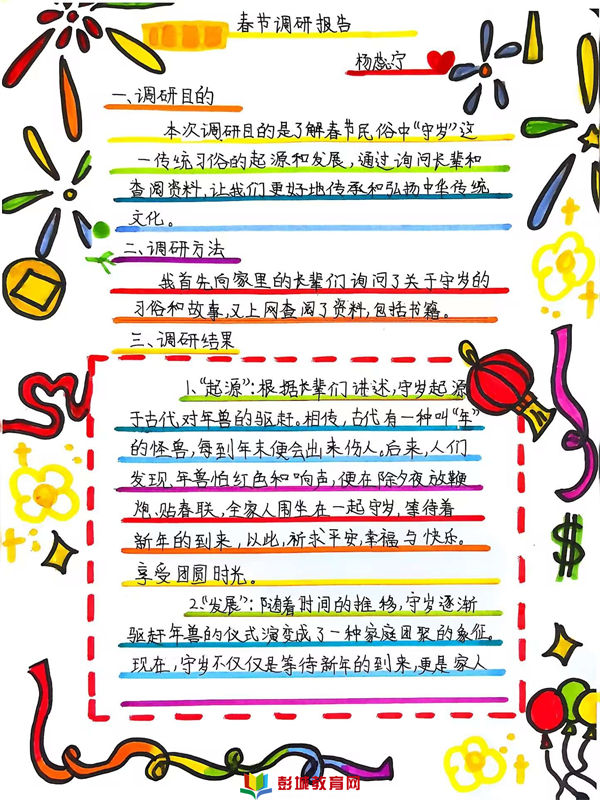 春节调研报告
杨蕊宁
一、调研目的
本次调研目的是了解春节民俗中“守岁”这
一传统习俗的起源和发展,通过询问长辈和
查阅资料,让我们更好地传承和弘扬中华传统
文化。
二、调研方法
我首先向家里的长辈们询问了关于守岁的
习俗和故事,又上网查阅了资料,包括书籍。
三、调研结果
1.“起源”:根据长辈们讲述,守岁起源
于古代对年兽的驱赶。相传,古代有一种叫“年”
的怪兽,每到年末便会出来伤人。后来,人们
发现,年兽怕红色和响声,便在除夕夜放鞭
炮、贴春联,全家人围坐在一起守岁,等待着
新年的到来,以此,祈求平安,幸福与快乐。
享受团圆时光。
2.“发展”:随着时间的推移,守岁逐渐
驱赶年兽的仪式演变成了一种家庭团聚的象征。
现在,守岁不仅仅是等待新年的到来,更是家人
彭城教育网